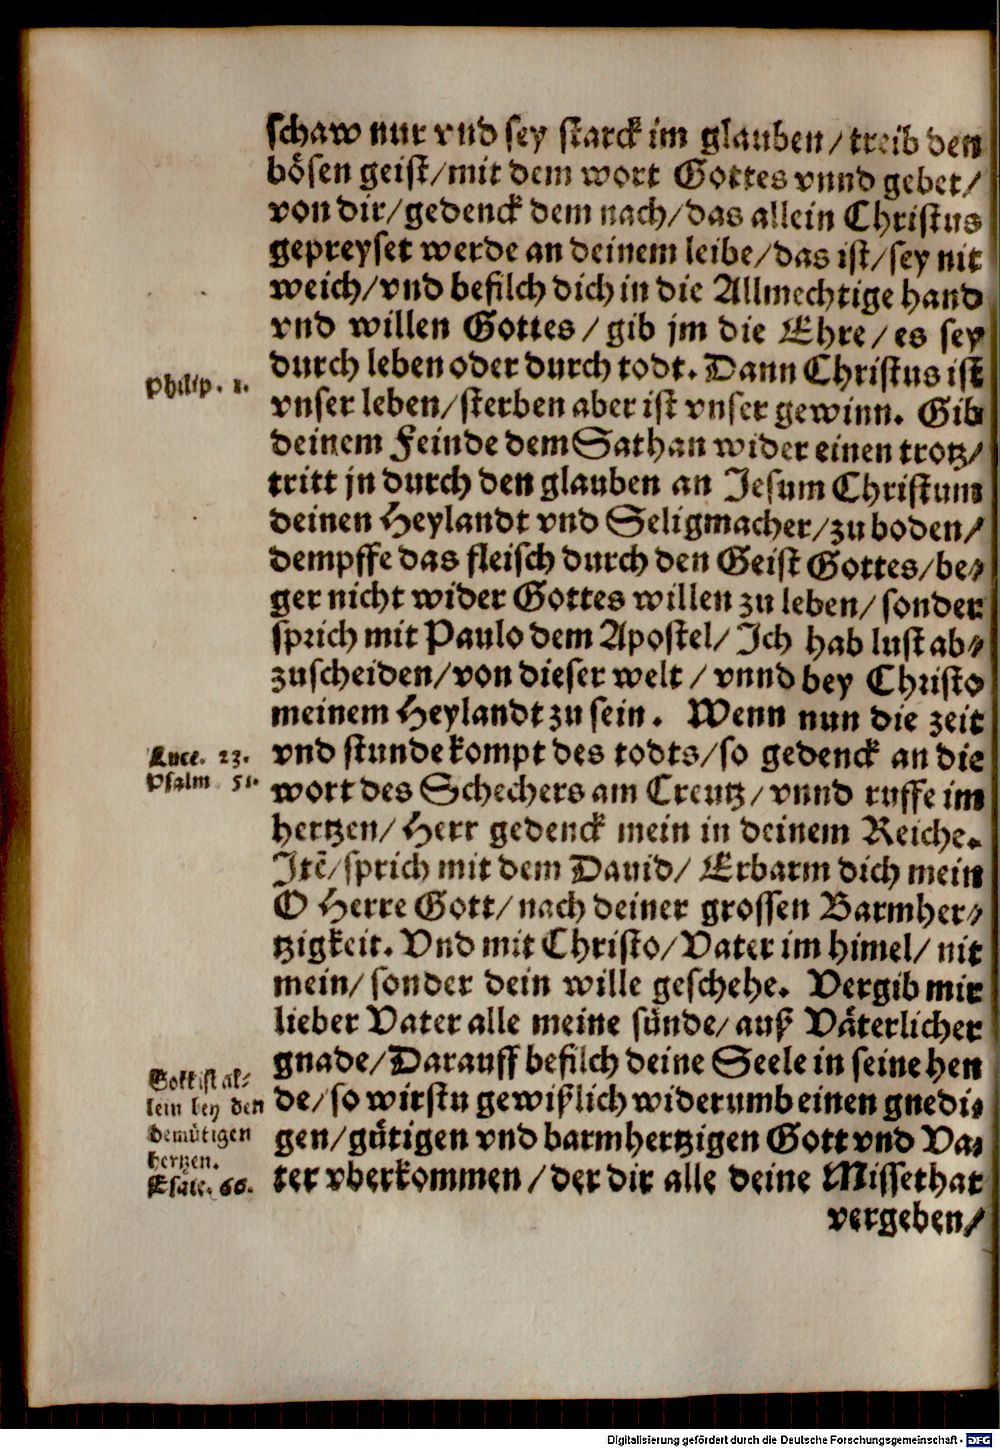 schaw nur vnd sey starck im glauben/ treib den
bösen geist/ mit dem wort Gottes vnnd gebet/
von dir/ gedenck dem nach/ das allein Christus
gepreyset werde an deinem leibe/ das ist/ sey nit
weich/ vnd befilch dich in die Allmechtige hand
vnd willen Gottes/ gib jm die Ehre/ es sey
durch leben oder durch todt. Dann Christus ist
Philip. 1.
vnser leben/ sterben aber ist vnser gewinn. Gib
deinem Feinde dem Sathan wider einen trotz/
tritt jn durch den glauben an Jesum Christum
deinen Heylandt vnd Seligmacher/ zu boden/
dempffe das fleisch durch den Geist Gottes/ be⸗
ger nicht wider Gottes willen zu leben/ sonder
sprich mit Paulo dem Apostel/ Ich hab lust ab⸗
zuscheiden/ von dieser welt/ vnnd bey Christo
meinem Heylandt zu sein. Wenn nun die zeit
Luce. 23.
Psalm 51.
vnd stunde kompt des todts/ so gedenck an die
wort des Schechers am Creutz/ vnnd ruffe im
hertzen/ Herr gedenck mein in deinem Reiche.
Itē/ sprich mit dem Dauid/ Erbarm dich mein
O Herre Gott/ nach deiner grossen Barmher⸗
tzigkeit. Vnd mit Christo/ Vater im himel/ nit
mein/ sonder dein wille geschehe. Vergib mir
lieber Vater alle meine sünde/ auß Väterlicher
gnade/ Darauff befilch deine Seele in seine hen
Gott ist al⸗
lein bey den
demütigen
hertzen.
Esaie. 66.
de/ so wirstu gewißlich widerumb einen gnedi⸗
gen/ gütigen vnd barmhertzigen Gott vnd Va⸗
ter vberkommen/ der dir alle deine Missethat
vergeben/
Digitalisierung gefördert durch die Deutsche Forschungsgemeinschaft - DFG